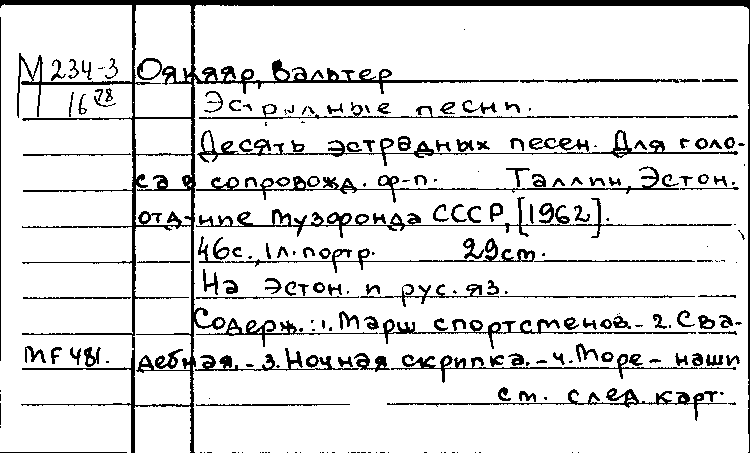 М 234-3 Оякяэр, Вальтер
16 78 Эстрадные песни.
Десять эстрадных песен. Для голо-
са в сопровожд. ф-п. Таллин, Эстон.
отд-ние Музфонда СССР, [1962].
46с., 1л. портр. 29см.
На эстон. и рус. яз.
Содерж.: 1. Марш спортсменов. - 2. Сва-
MF 481. дебная. - 3. Ночная скрипка. - 4. Море - наши
см. след. карт.